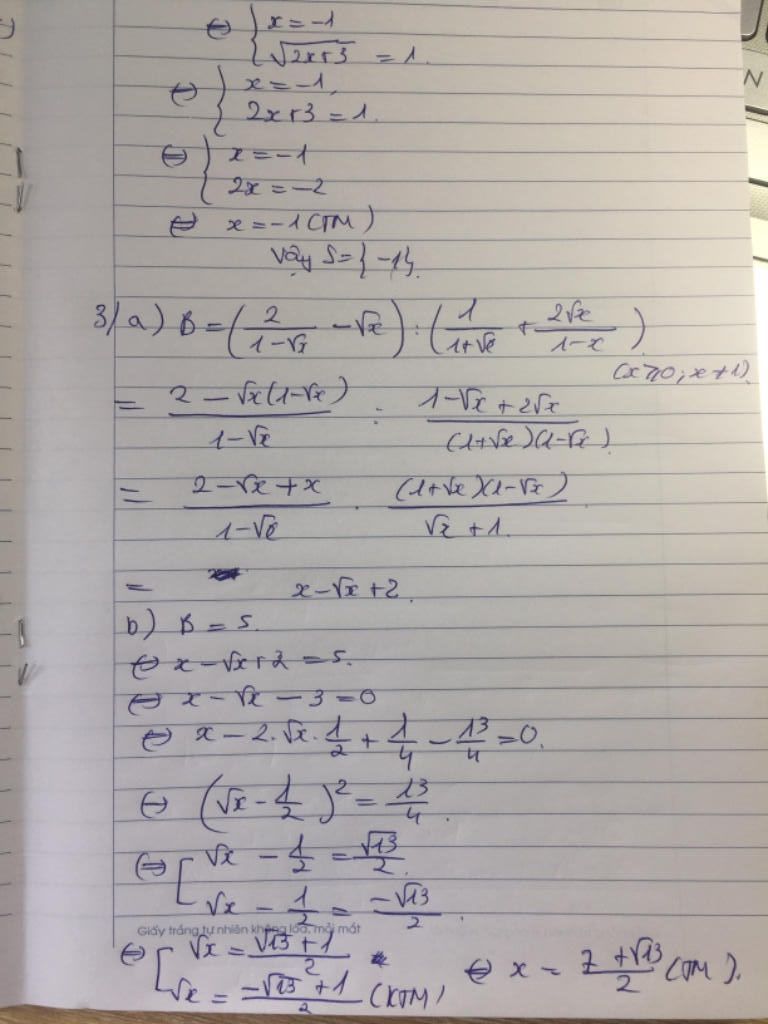 ⇔ { x = -1
√(2x+3) = 1.
⇔ { x = -1,
2x+3 = 1.
⇔ { x = -1
2x = -2
⇔ x = -1 (TM)
Vậy S = {-1}.
3/ a) B = (2/(1-√x) - √x) : (1/(1+√x) + 2√x/(1-x))
(x ≥ 0; x ≠ 1)
= (2 - √x(1-√x))/(1-√x) : (1-√x+2√x)/((1+√x)(1-√x))
= (2-√x+x)/(1-√x) . ((1+√x)(1-√x))/(√x+1).
= x-√x+2.
b) B = 5.
⇔ x-√x+2 = 5.
⇔ x - √x - 3 = 0
⇔ x - 2.√x.1/2 + 1/4 - 13/4 = 0.
⇔ (√x - 1/2)² = 13/4.
⇔ [ √x - 1/2 = √13/2.
√x - 1/2 = -√13/2.
Giấy trắng tự nhiên không lóa, mỏi mắt
⇔ [ √x = (√13+1)/2 ⇔ x = (7+√13)/2 (TM).
√x = (-√13+1)/2 (KTM)